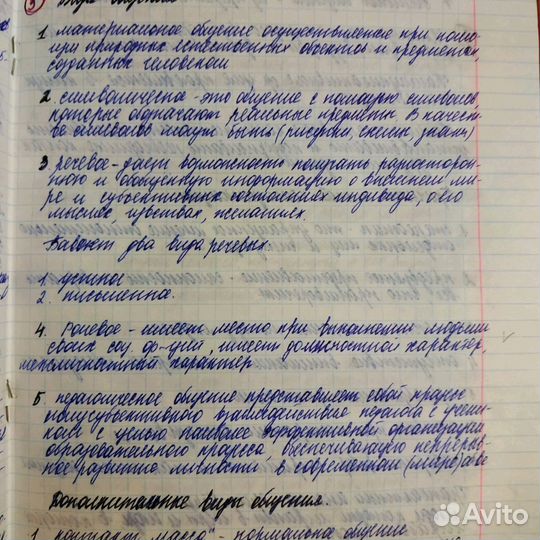 3) Виды общения
1. материальное общение осуществляемое при помо-
щи природных естественных объектов и предметов,
созданных человеком
2. символическое - это общение с помощью символов,
которые обозначают реальные предметы. В качест-
ве символов могут быть (рисунки, схемы, знаки)
3. речевое - дает возможность получать разносторон-
нюю и обобщенную информацию о внешнем ми-
ре и субъективных состояниях индивида, о его
мыслях, чувствах, желаниях.
Бывают два вида речевых:
1. устное
2. письменная.
4. Ролевое - имеет место при выполнении людьми
своих соц. ф-ций, имеет должностной характер,
межличностный характер
5. педагогическое общение представляет собой процесс
межсубъективного взаимодействие педагога с учени-
ком с целью наиболее эффективной организации
образовательного процесса, обеспечивающую непрерыв-
ное развитие личности в современном (микро)
Дополнительные виды общения.
1. контакт "масок" - формальное общение
Avito